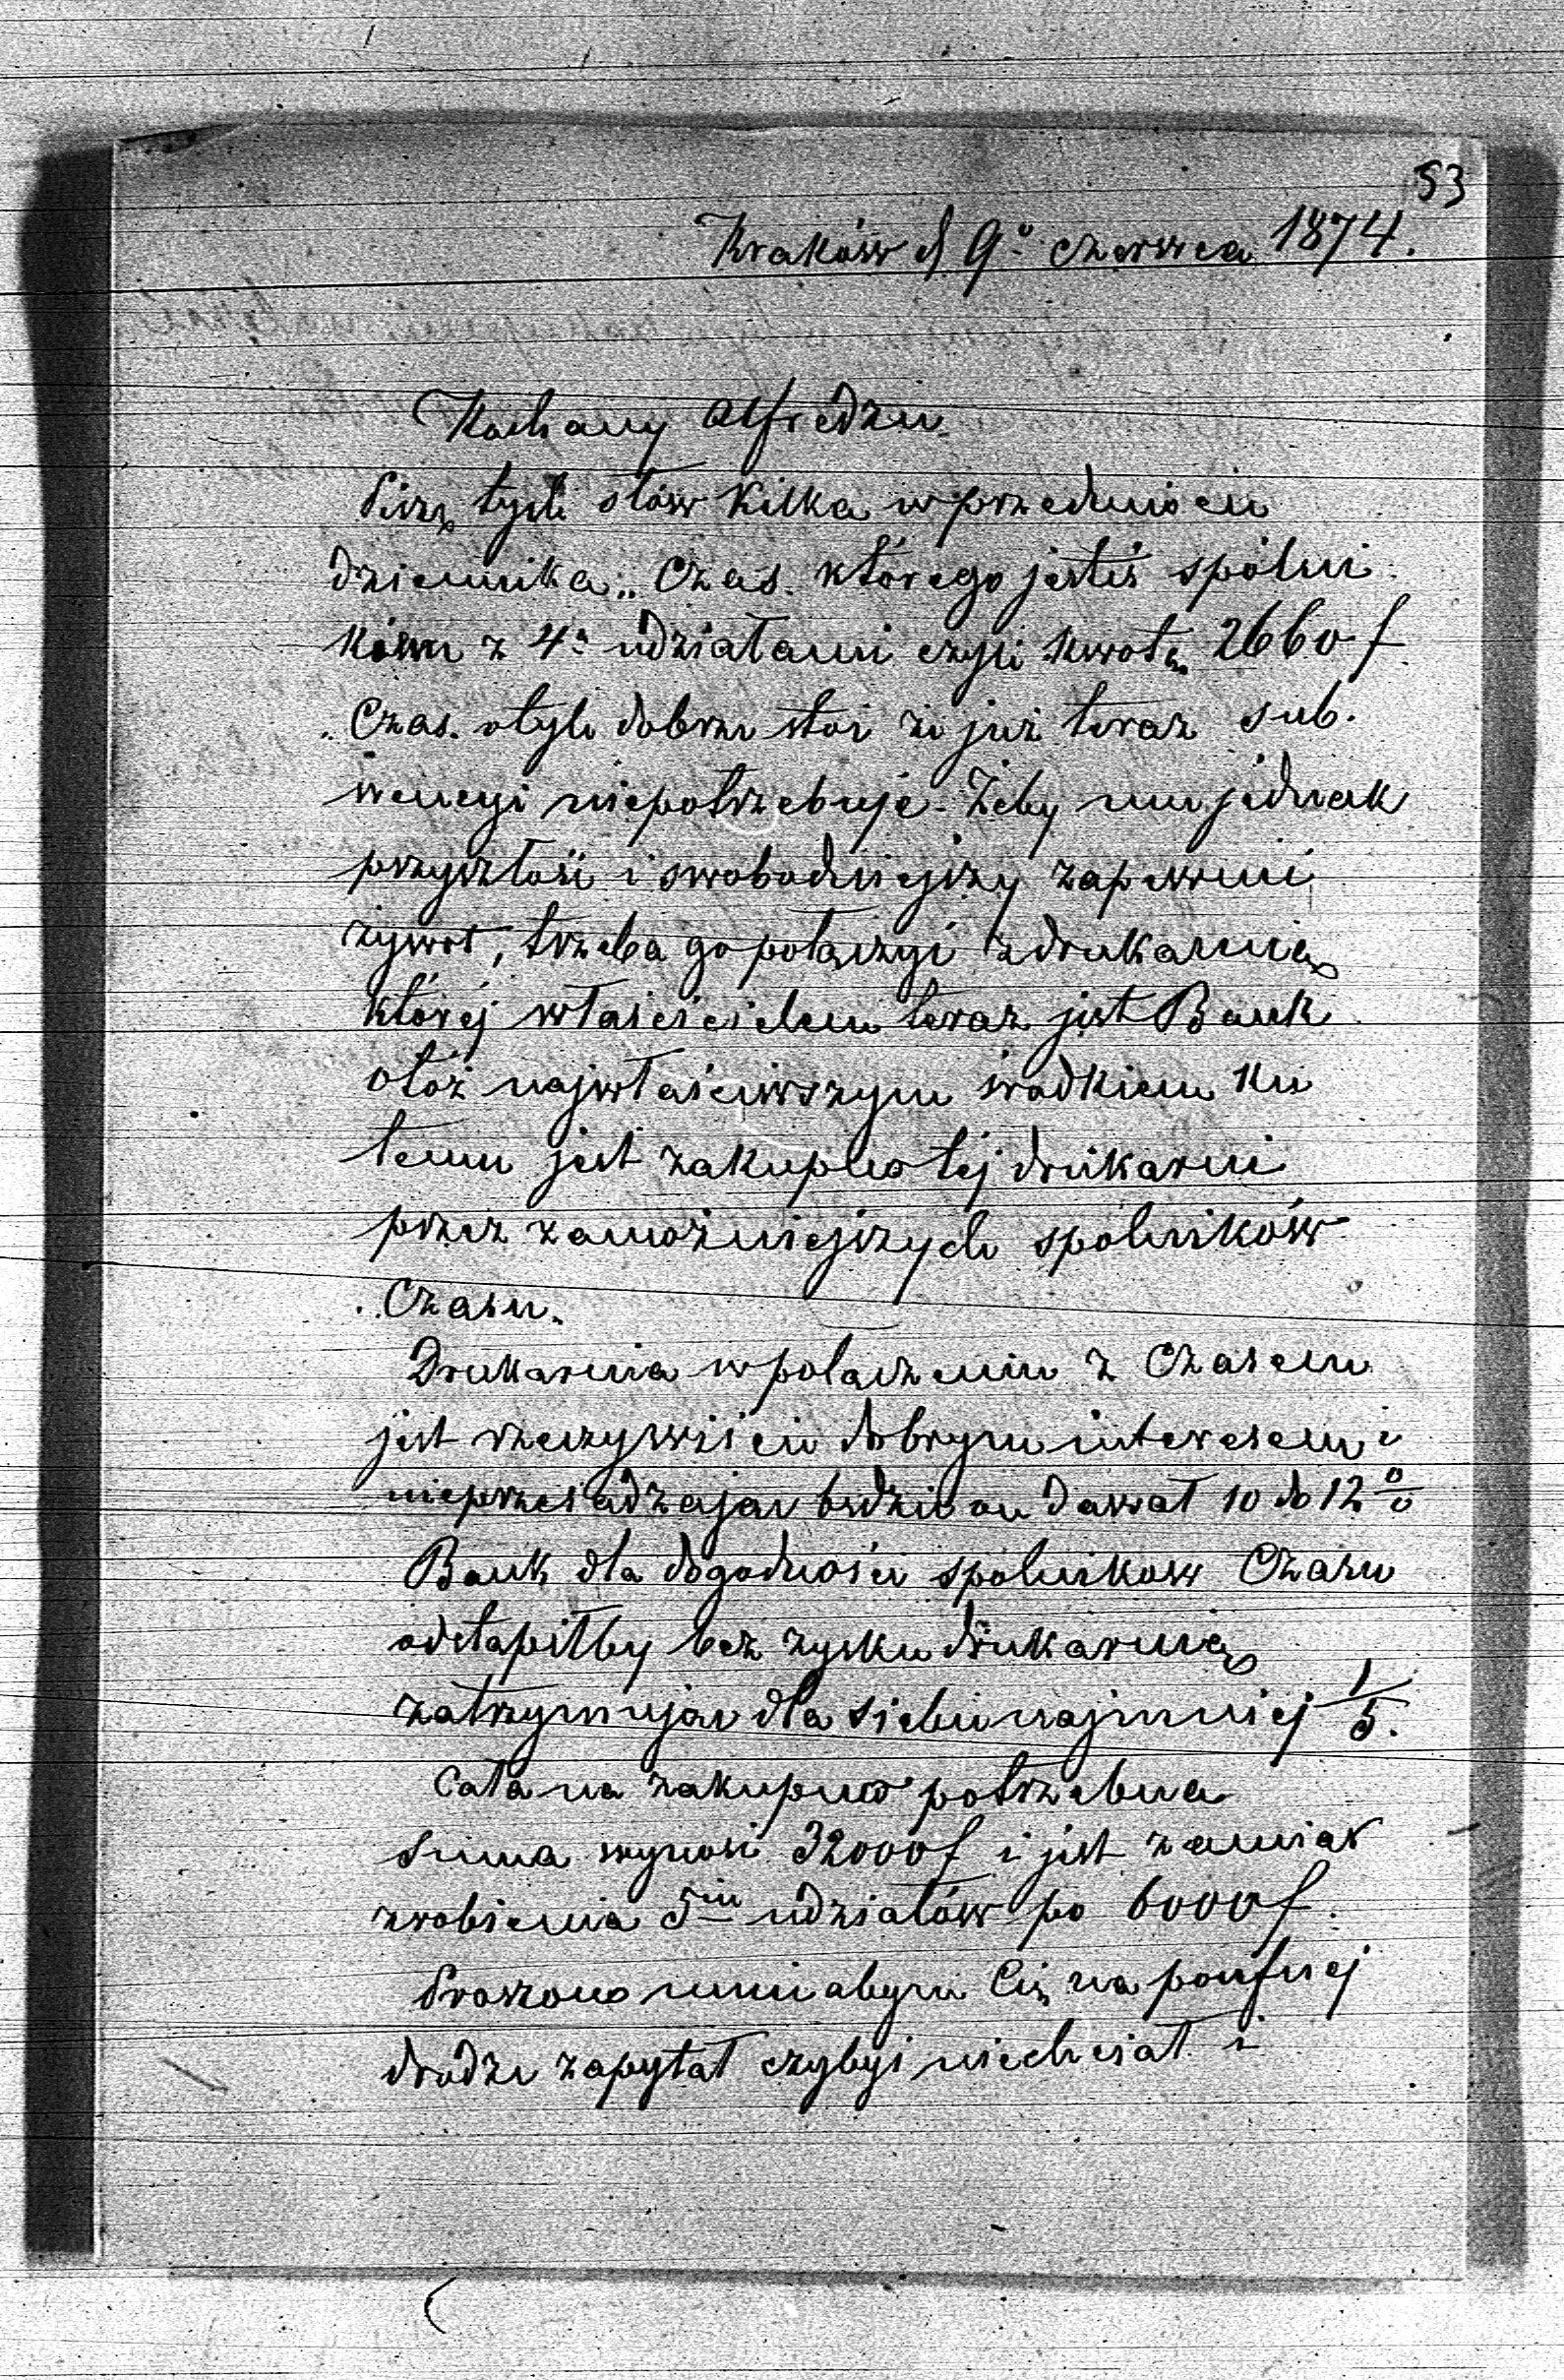 53
Kraków d 9º czerwca 1874.
Kochany Alfredzie
Piszę tych słów kilka w przedmiocie
dziennika „Czas" którego jesteś spólni
kiem z 4ª udziałami czyli kwotą 2660 f
„Czas" o tyle dobrze stoi że już teraz sub.
wencyi niepotrzebuje. Żeby mu jednak
przyszłość i swobodniejszy zapewnić
żywot, trzeba go połączyć z drukarnią
której właścicielem teraz jest Bank
otóż najwłaściwszym środkiem ku
temu jest zakupno tej drukarni
przez zamożniejszych spólników
„Czasu"
Drukarnia w połączeniu z Czasem
jest rzeczywiście dobrym interesem i
nieprzesadzając będzie on dawał 10 do 12 %
Bank dla dogodności spólników Czasu
odstąpiłby bez zysku drukarnią
zatrzymując dla siebie najmniej 1/5.
Cała na zakupno potrzebna
suma wynosi 32000 f i jest zamiar
zrobienia 5ciu udziałów po 6000 f.
Proszono mnie abym Cię na poufnej
drodze zapytał czybyś niechciał i